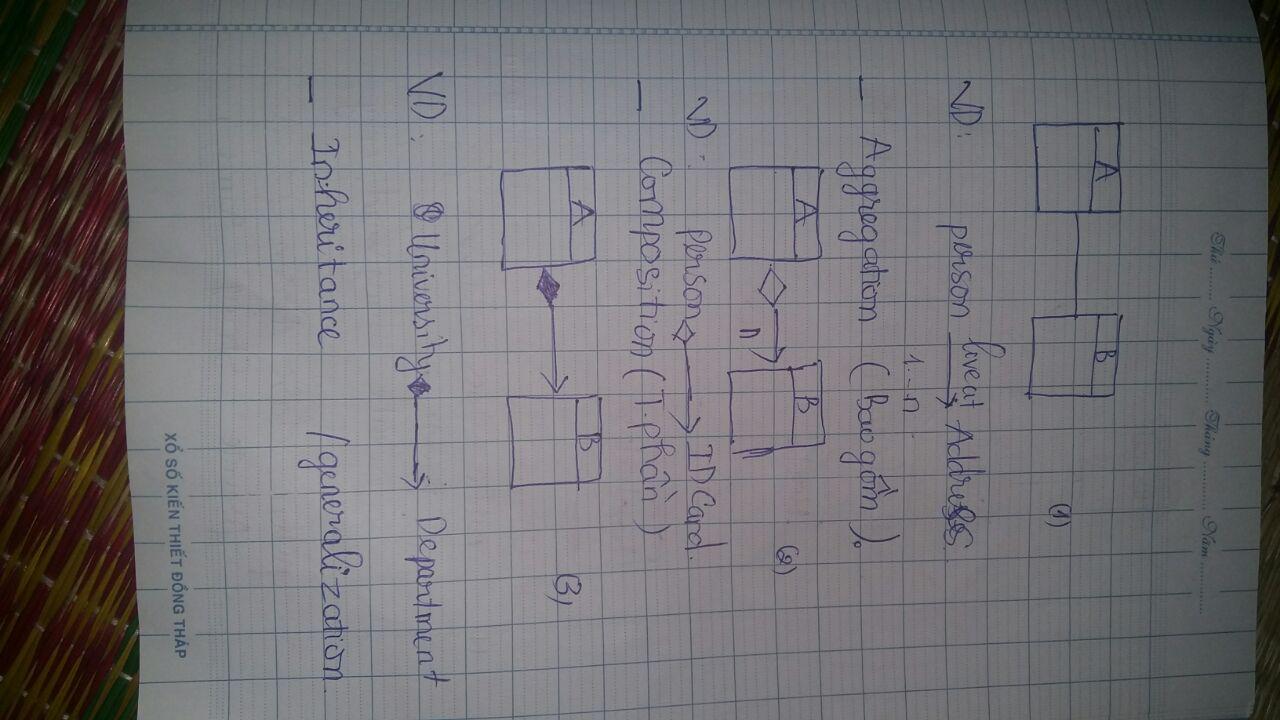 Thứ ......... Ngày ............ Tháng ............ Năm ............
A B
(1)
VD: person liveat Address.
1...n
- Aggregation (Bao gồm).
A n B
n
(2)
VD: Person IDCard.
- Composition (T.phần)
A B
(3)
VD: University Department
- Inheritance /generalization.
XỔ SỐ KIẾN THIẾT ĐỒNG THÁP